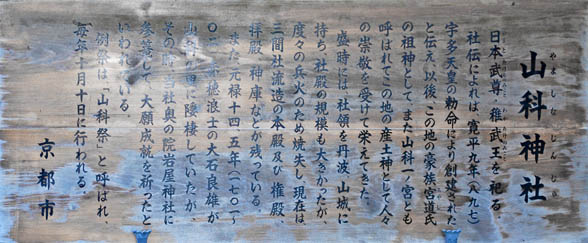 山科神社
やましなじんじゃ
日本武尊、稚武王を祀る
社伝によれば、寛平九年(八九七)
宇多天皇の勅命により創建された
と伝え、以後、この地の豪族宮道氏
の祖神として、また山科一宮とも
呼ばれてこの地の産土神として人々
の崇敬を受けて栄えてきた。
盛時には、社領を丹波、山城に
持ち、社殿の規模も大きかったが、
度々の兵火のため焼失し、現在は
三間社流造の本殿及び権殿、
拝殿、神庫などが残っている。
また、元禄十四、五年(一七〇一~
〇二)赤穂浪士の大石良雄が
山科の里に隠棲していたが、
その際、当社奥の院岩屋神社に
参籠して、大願成就を祈ったと
いわれている。
例祭は「山科祭」と呼ばれ、
毎年十月十日に行われる。
京都市